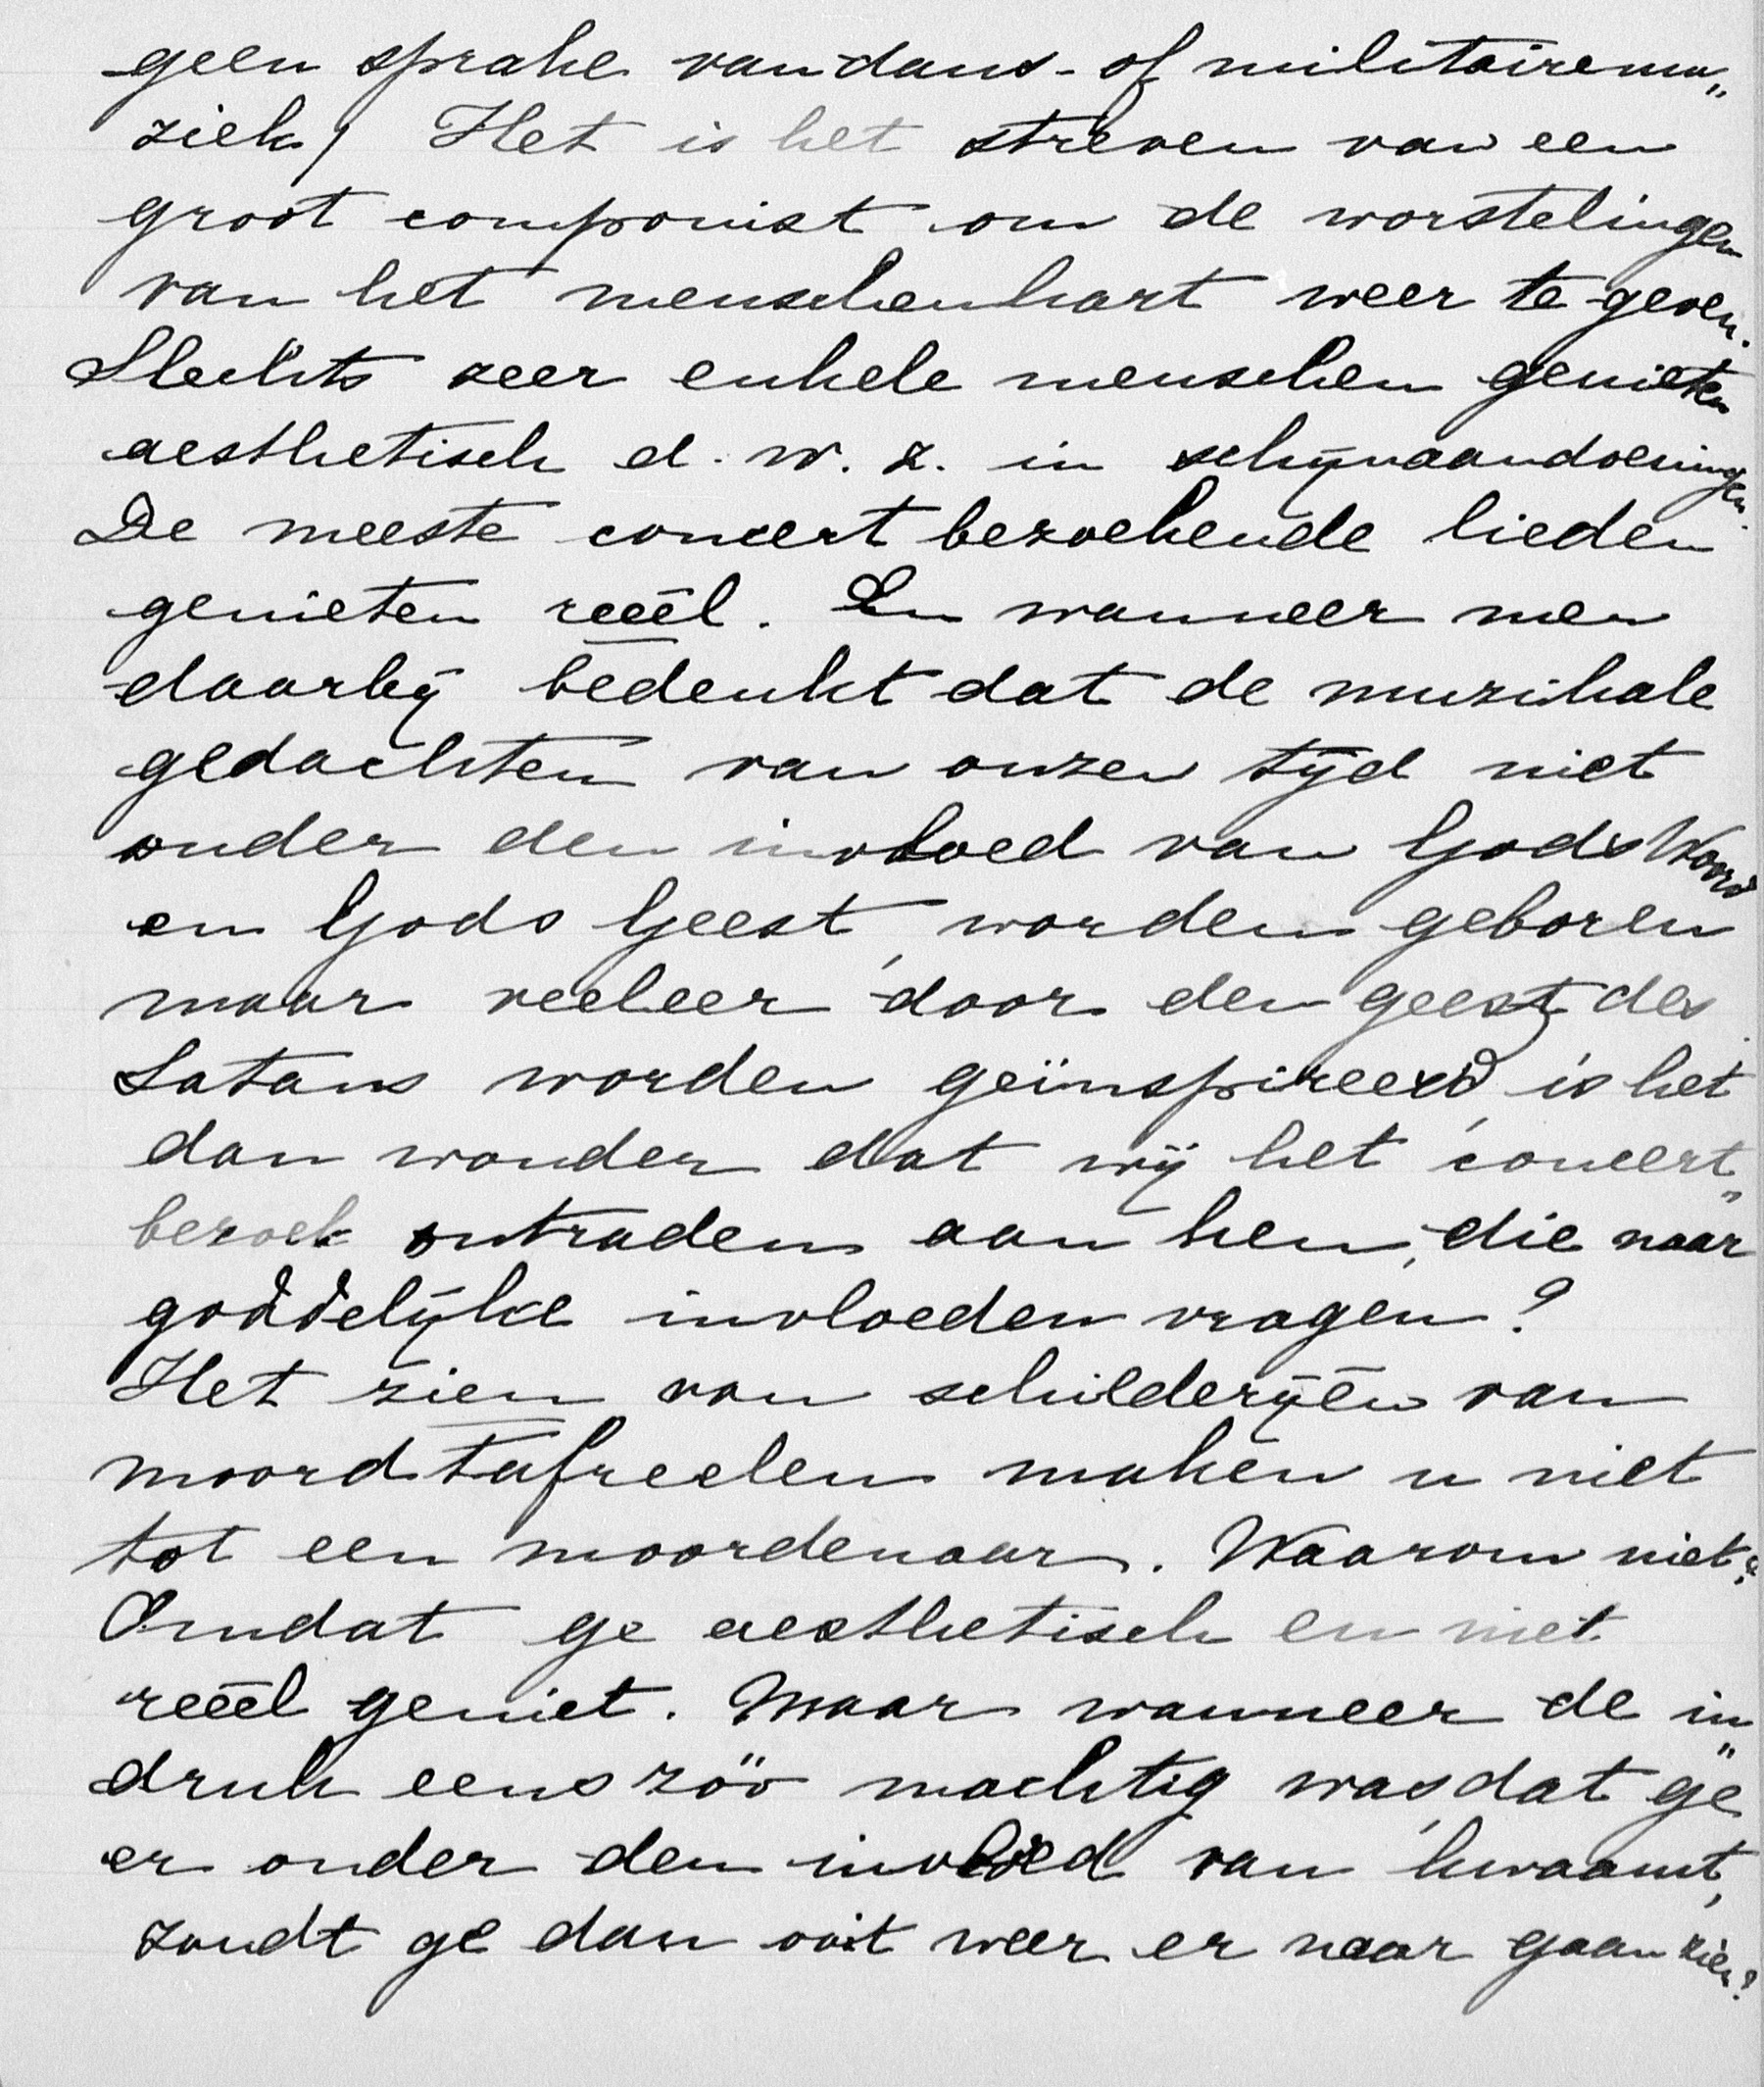 geen sprake van dans- of militairemu„
ziek) Het is het streven van een
groot componist om de worstelingen
van het menschenhart weer te geven.
Slechts zeer enkele menschen genieten
aesthetisch d. w. z. in schijnaandoeningen.
De meeste concert bezoekende lieden
genieten reëel. En wanneer men
daarbij bedenkt dat de muzikale
gedachten van onzen tijd niet
onder den invloed van Gods Woord
en Gods Geest, worden geboren
maar veeleer door den geest des
Satans worden geïnspireerd, is het
dan wonder dat wij het concert„
bezoek ontraden aan hen, die naar
goddelijke invloeden vragen?
Het zien van schilderijën van
moord tafreelen maken u niet
tot een moordenaar. Waarom niet?
Omdat ge aesthetisch en niet
reëel geniet. Maar wanneer de in„
druk eens zóó machtig was, dat ge
er onder den invloed van kwaamt,
zoudt ge dan ooit weer er naar gaan zien?